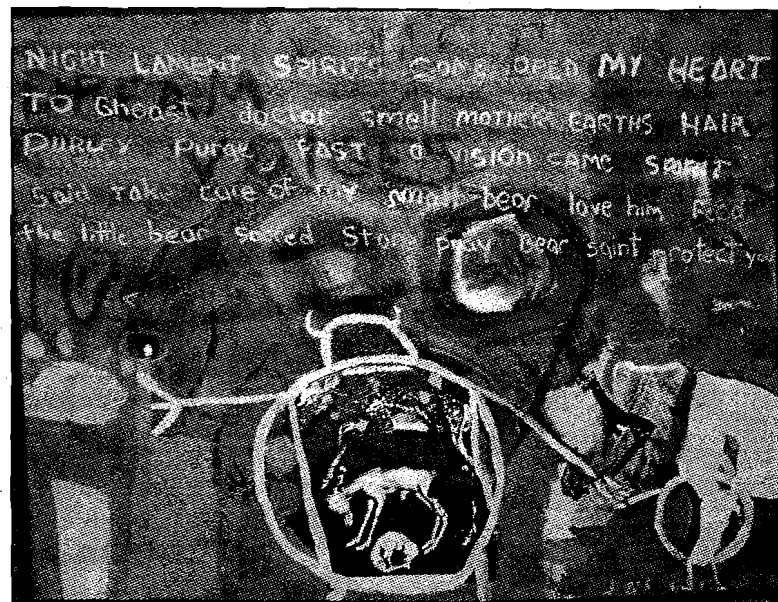 NIGHT LAMENT SPIRITS COME OPEN MY HEART
TO Gheast doctor smell mother EARTHS HAIR
PURLY Purge FAST a VISION CAME SPIRIT
Said TAKE care of my small-bear love him Feed
the little bear sacred Stone pray Bear saint protect you